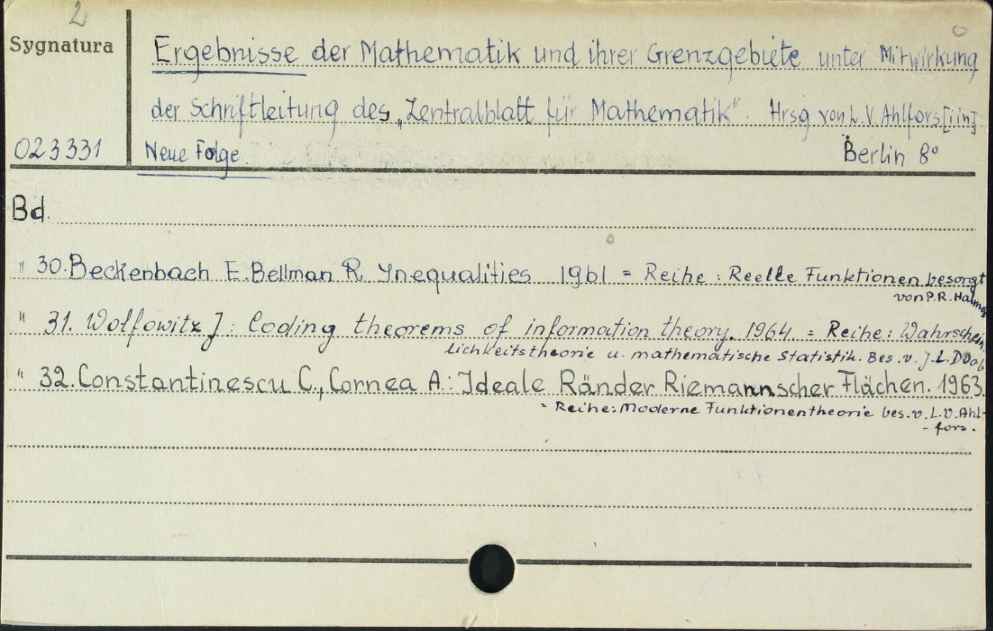 2
Sygnatura
Ergebnisse der Mathematik und ihrer Grenzgebiete unter Mitwirkung
der Schriftleitung des „Zentralblatt für Mathematik". Hrsg von L. V. Ahlfors [i in]
023331 Neue Folge. Berlin 8°
Bd.
" 30. Beckenbach E. Bellman R. Inequalities 1961 = Reihe: Reelle Funktionen besorgt
von P.R. Halmos
" 31. Wolfowitz J: Coding theorems of information theory. 1964. = Reihe: Wahrschein
lichkeitstheorie u. mathematische Statistik. Bes. v. J. L. Doob
" 32. Constantinescu C., Cornea A.: Ideale Ränder Riemannscher Flächen. 1963.
= Reihe: Moderne Funktionentheorie bes. v. L. V. Ahl-
- fors.